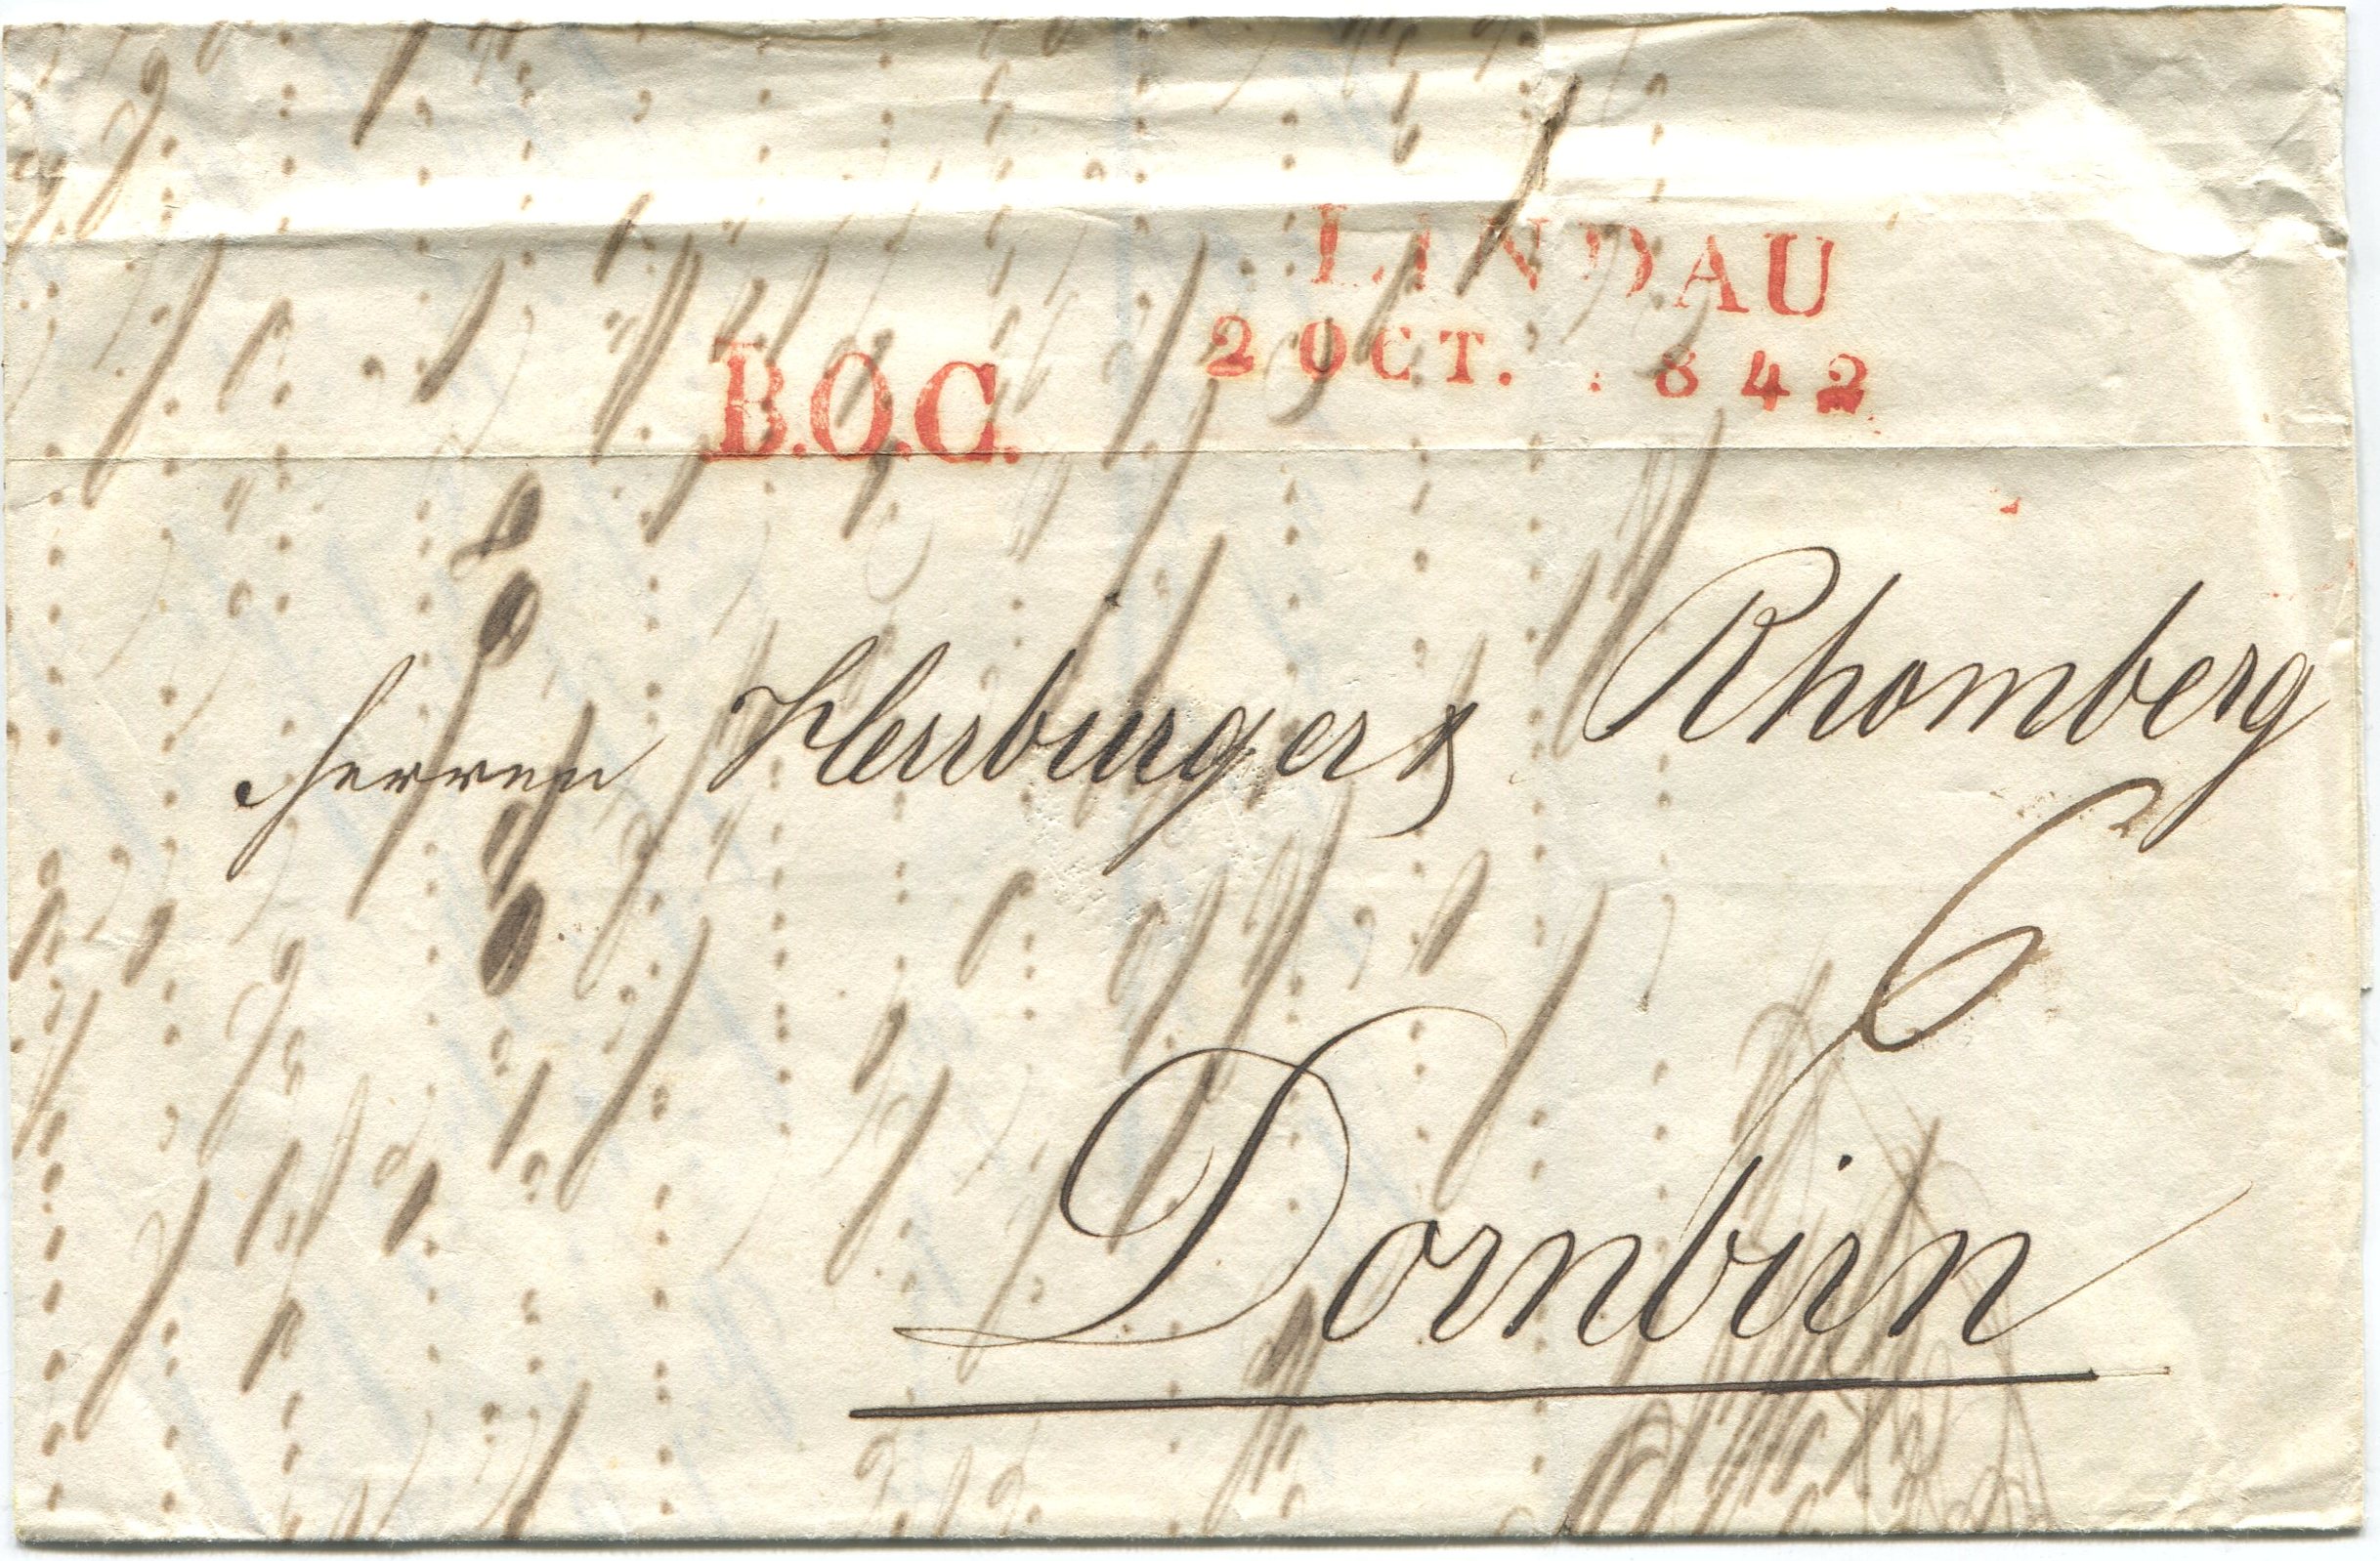 LINDAU
2 OCT. 1842
B.O.C.
Herren Herrburger & Rhomberg
6
Dornbirn